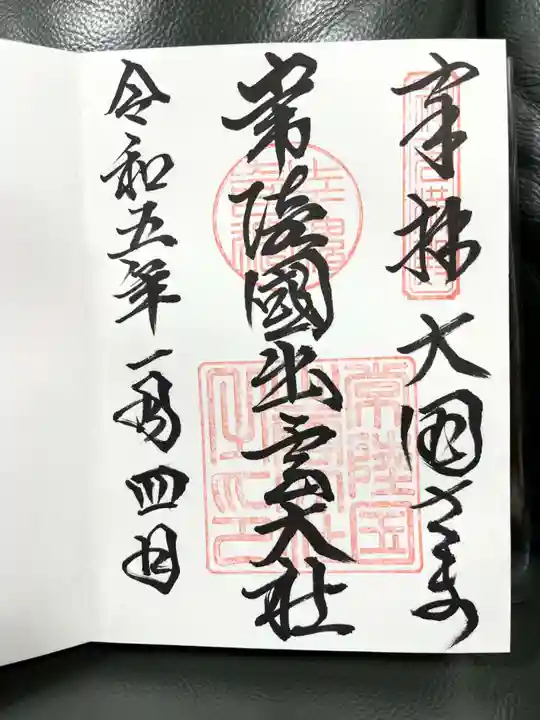 奉拝 大国さま
常陸國出雲大社
令和五年一月四日
常陸国